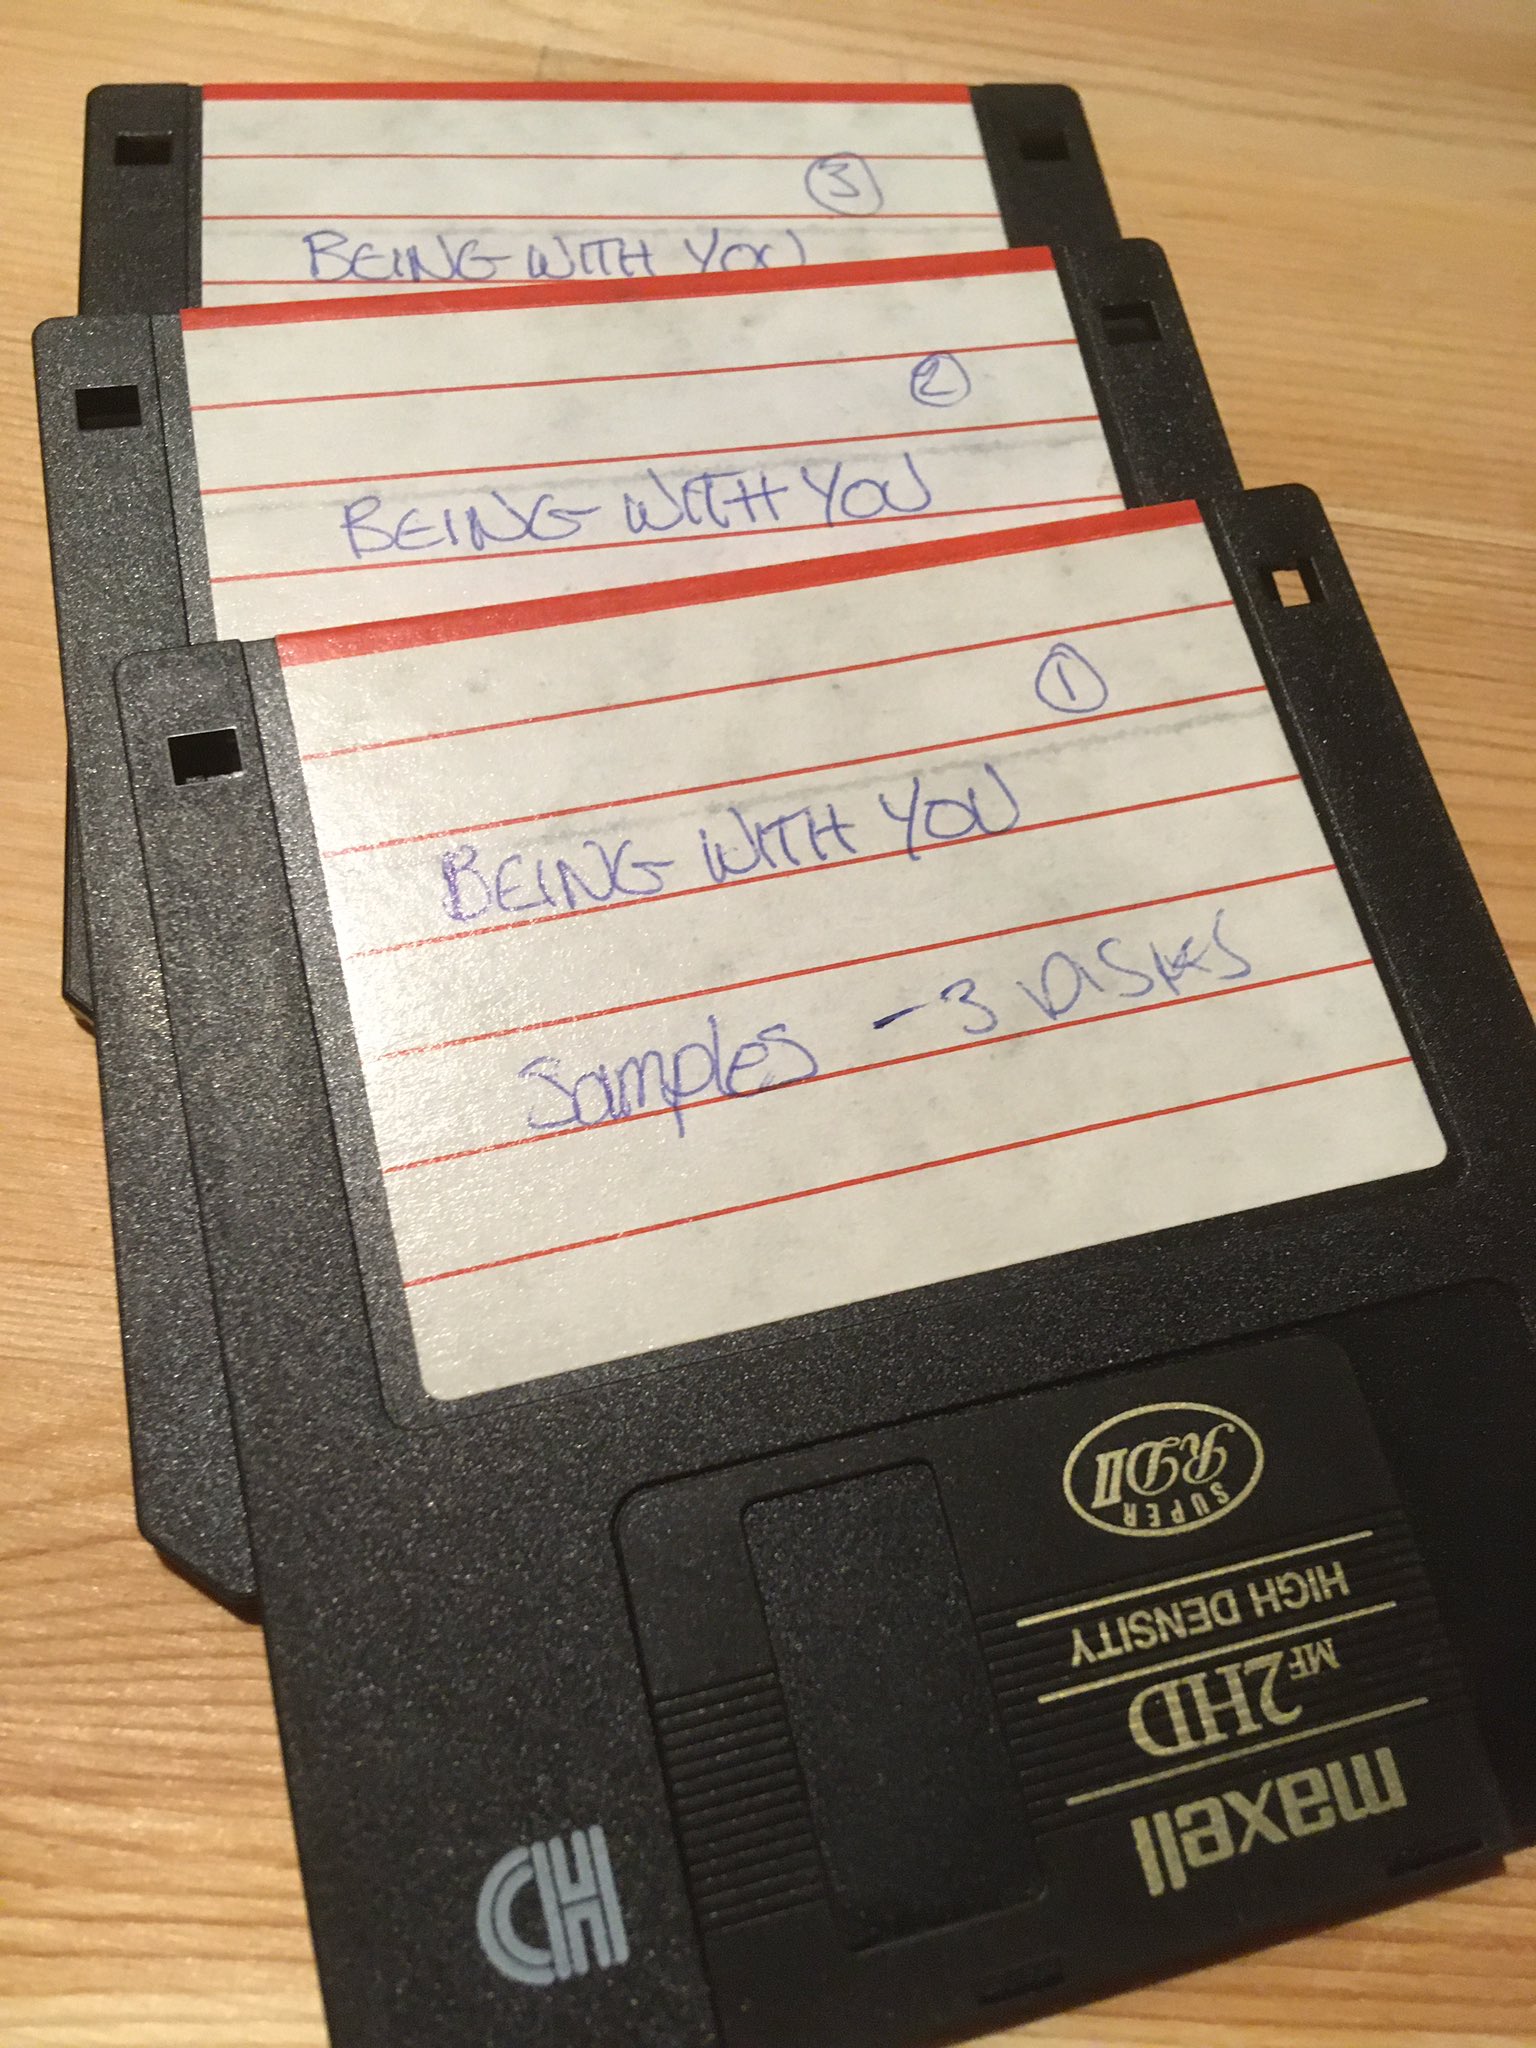 3
BEING WITH YOU
2
BEING WITH YOU
1
BEING WITH YOU
Samples - 3 DISKS
SUPER
RDII
HIGH DENSITY
MF 2HD
maxell
HD